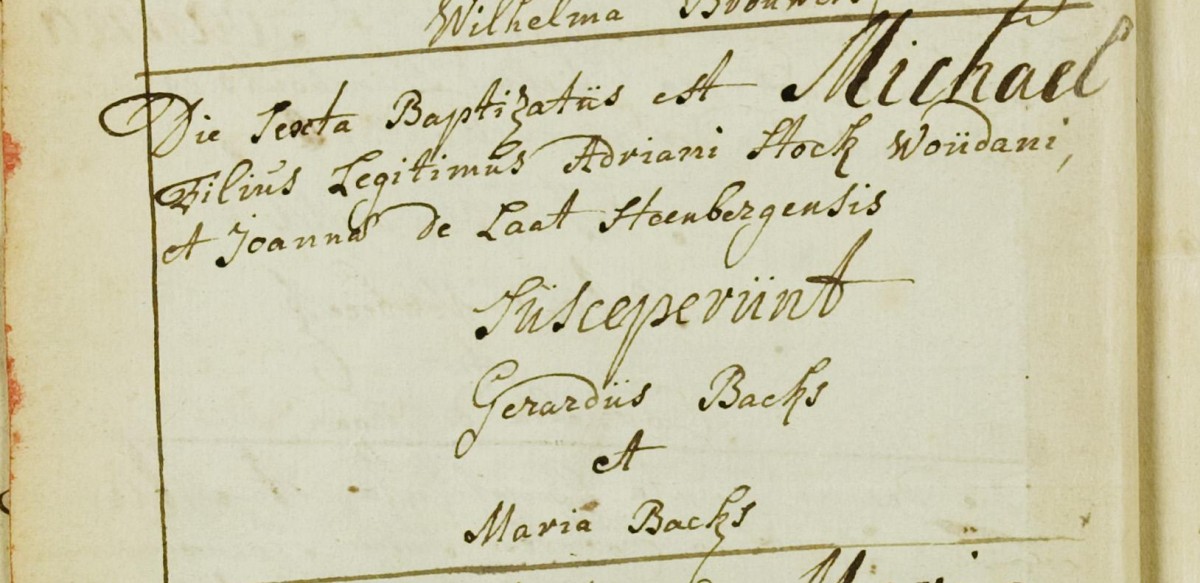 Wilhelma Brouwers
Die Sexta Baptizatüs est Michael
Filiüs Legitimüs Adriani Stock Woüdani,
et Joannæ de Laat Steenbergensis
Süsceperünt
Gerardüs Backs
et
Maria Backs